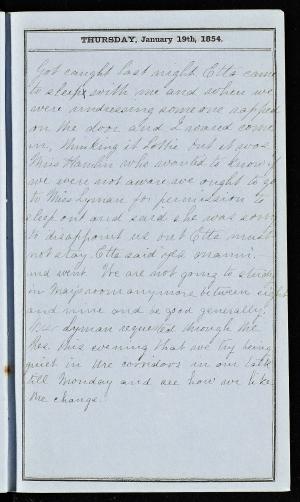 THURSDAY, January 19th, 1854.
Got caught last night. Etta came
to sleep with me and when we
were undressing someone rapped
on the door and I roared come
in, thinking it Lottie but it was
Miss who wanted to know if
we were not aware we ought to go
to Miss Lyman for permission to
sleep out and said she was sorry
to disappoint us but Etta must
not stay. Etta said
and went. We are not going to study
in May's room anymore between eight
and nine and be good generally.
Miss Lyman requested through the
this evening that we try being
quiet in the corridors in our talk
till Monday and see how we like
the change.